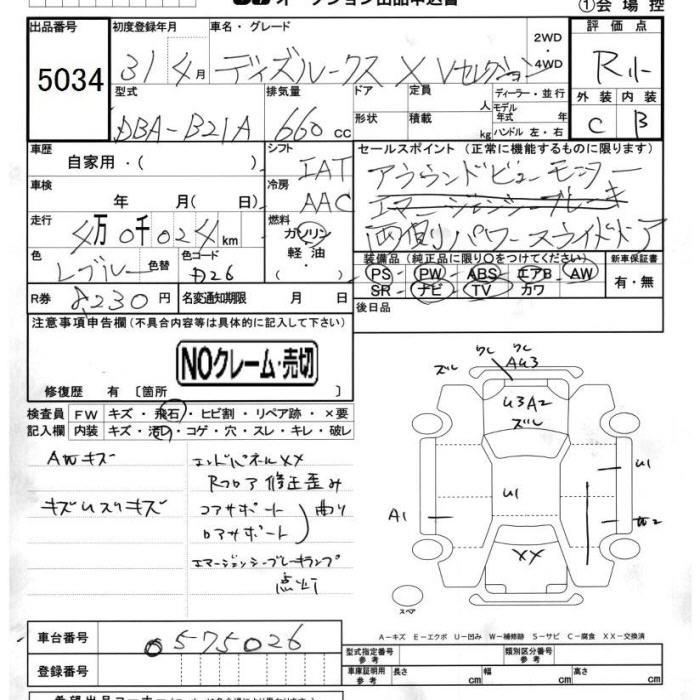 オークション出品申込書
①会場控
出品番号 初度登録年月 車名・グレード 評価点
5034 31 4月 ディズルークス X Vセレクション 2WD・4WD R
型式 排気量 ドア 定員 人 ディーラー・並行 外装 内装
DBA-B21A 660cc 形状 積載 kg モデル年式 年式 ハンドル 左・右 C B
車歴 シフト セールスポイント (正常に機能するものに限ります)
自家用・( ) IAT アラウンドビューモニター
車検 冷房 エマージェンシーブレーキ
年 月( 日) AAC 両側パワースライドドア
走行 燃料
4万0千024km ガソリン・軽油・( )
色 色替 色コード 装備品 (純正品に限り○をつけてください) 新車保証書
Lブルー PS・PW・ABS・エアB・AW 有・無
SR・ナビ・TV・カワ
R券 8230円 名変通知期限 月 日 後日品
注意事項申告欄(不具合内容等は具体的に記入して下さい)
NOクレーム・売切
修復歴 有 [箇所 ]
検査員記入欄 FW キズ・飛石・ヒビ割・リペア跡・×要
内装 キズ・汚レ・コゲ・穴・スレ・キレ・破レ
AWキズ エンドパネルXX
Rフロア修正歪み
コアサポート
ロアサポート 曲り
エマージェンシーブレーキランプ
点灯
ズル ワレ ワレ
AU3
U3A2
ズル
U1
U1
A1
W2
XX
スペア
A-キズ E-エクボ U-凹み W-補修跡 S-サビ C-腐食 XX-交換済
車台番号 0575026 型式指定番号 参考 類別区分番号 参考
登録番号 車庫証明用 参考 長さ 幅 高さ cm